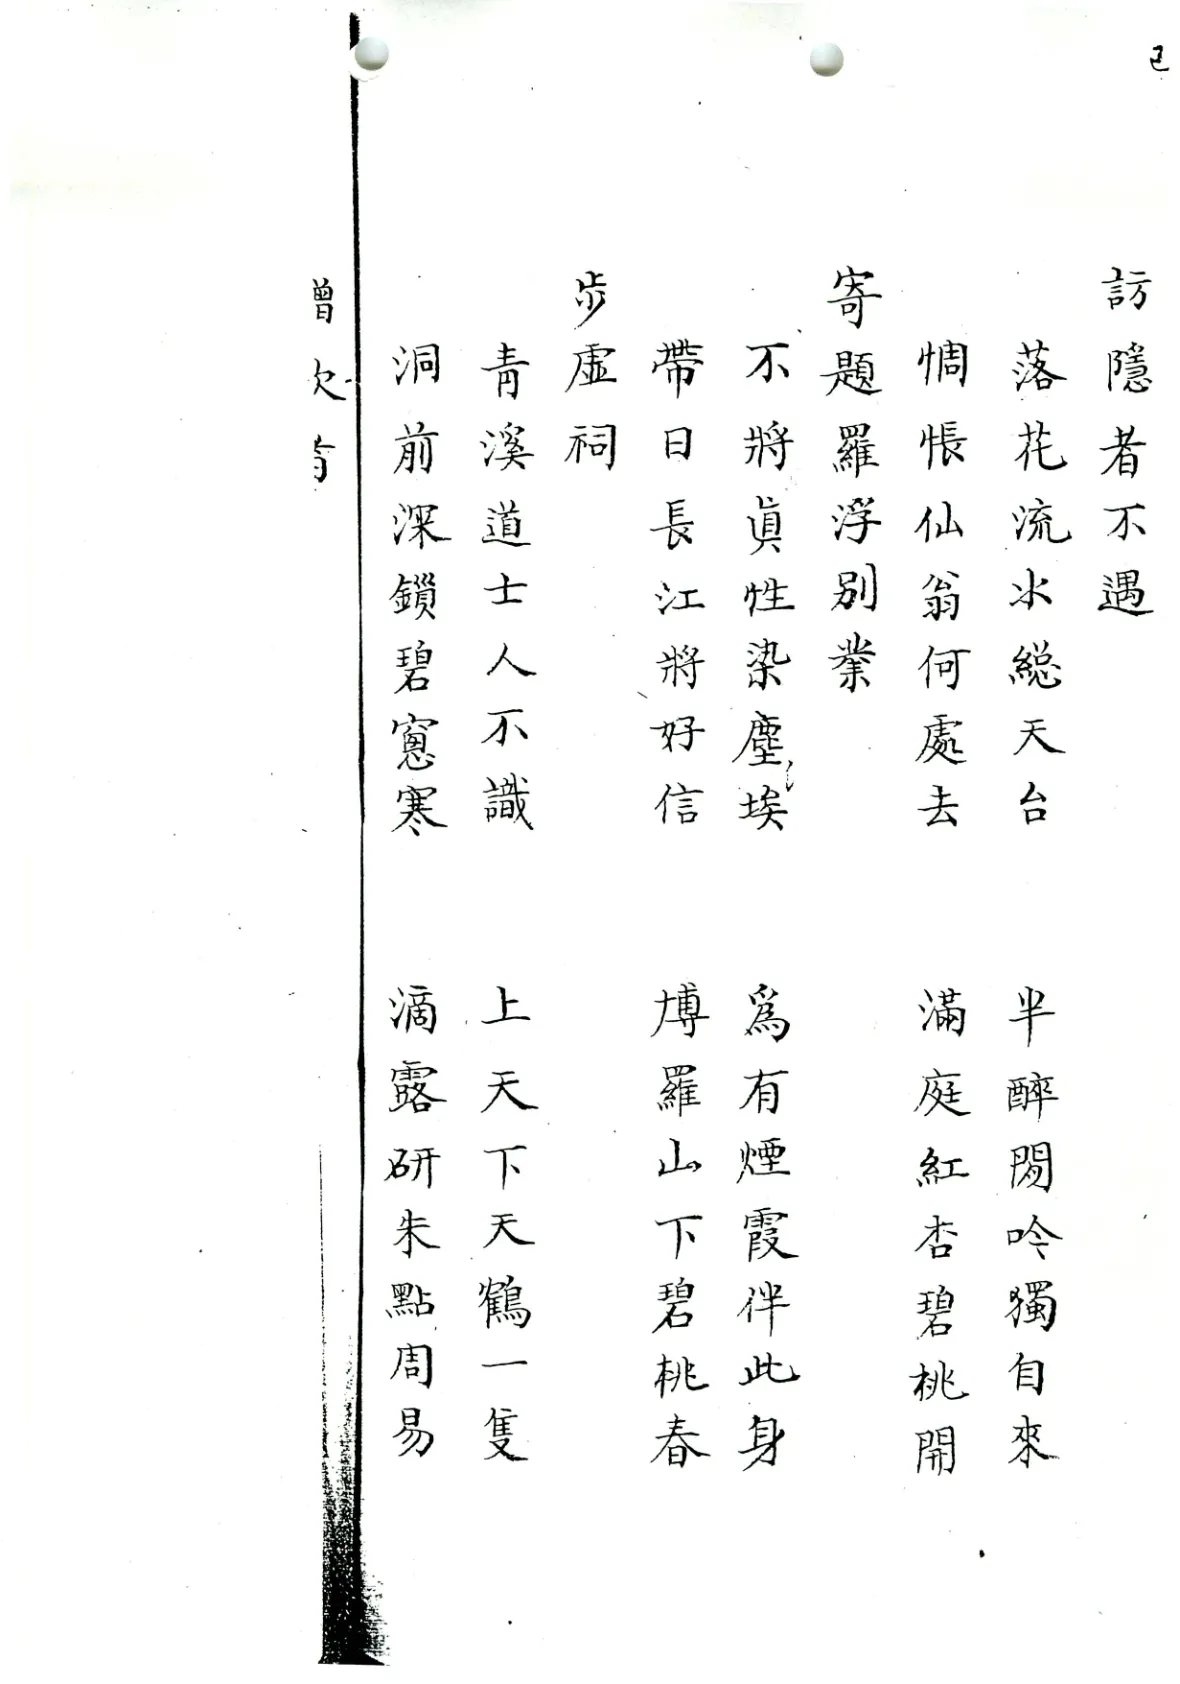 已
訪隱者不遇
落花流水総天台 半醉閒吟獨自來
惆悵仙翁何處去 滿庭紅杏碧桃開
寄題羅浮別業
不將眞性染塵埃 爲有煙霞伴此身
帶日長江將好信 博羅山下碧桃春
步虛祠
青溪道士人不識 上天下天鶴一隻
洞前深鎖碧窻寒 滴露研朱點周易
曾